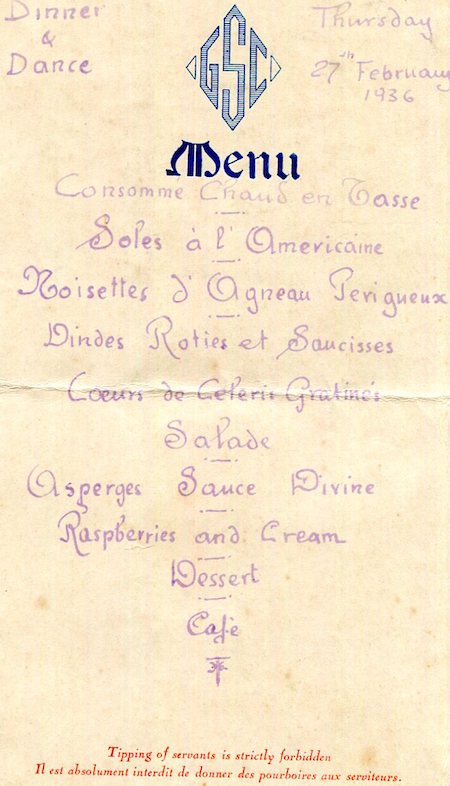 Dinner
&
Dance
Thursday
27th February
1936
GSC
Menu
Consomme Chaud en Tasse
Soles à l'Americaine
Noisettes d'Agneau Perigueux
Dindes Roties et Saucisses
Cœurs de Celeris Gratinés
Salade
Asperges Sauce Divine
Raspberries and Cream
Dessert
Café
Tipping of servants is strictly forbidden
Il est absolument interdit de donner des pourboires aux serviteurs.